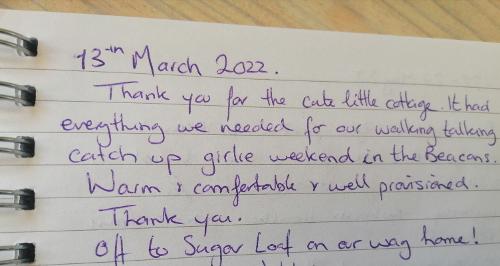 13th March 2022.
Thank you for the cute little cottage. It had
everything we needed for our walking talking
catch up girlie weekend in the Beacons.
Warm & comfortable & well provisioned.
Thank you.
Off to Sugar Loaf on our way home!